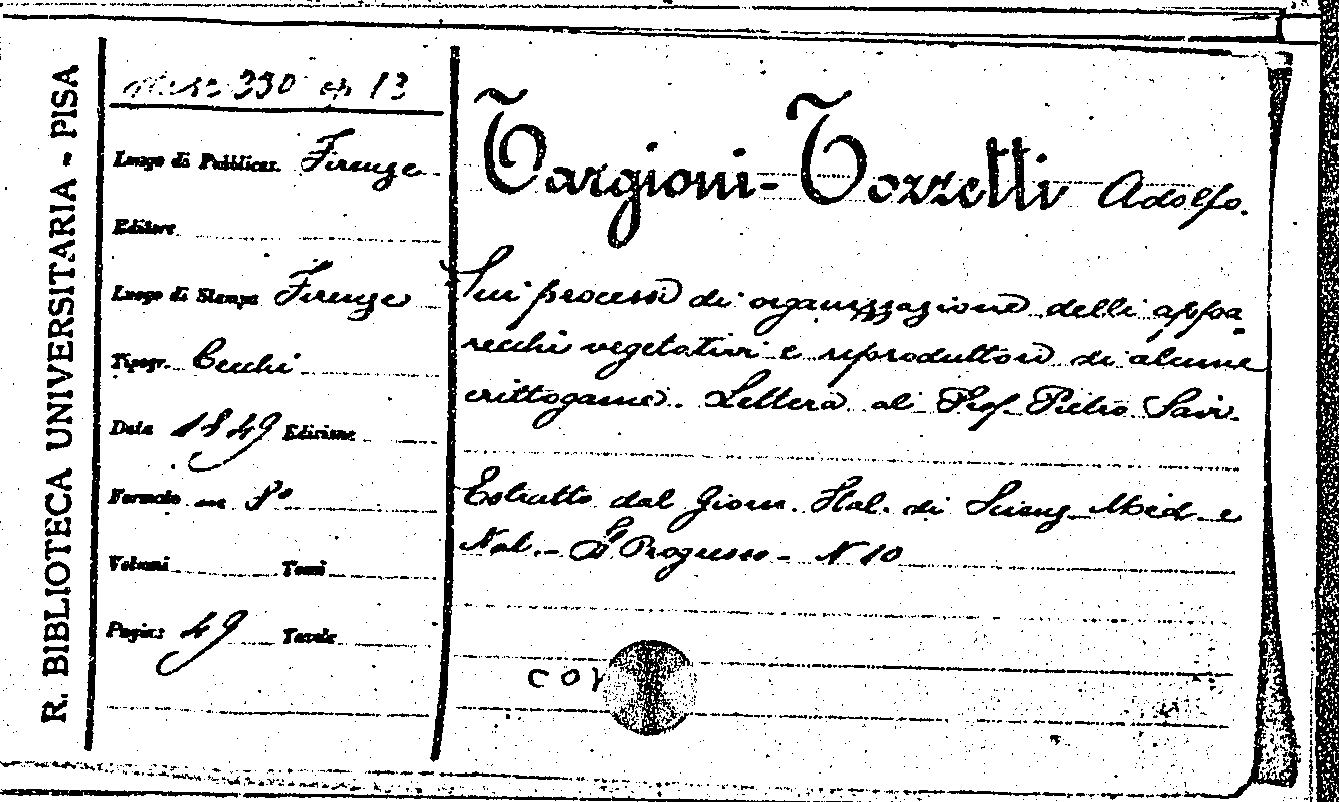 R. BIBLIOTECA UNIVERSITARIA - PISA
Misc 330 op 13
Luogo di Pubblicaz. Firenze
Editore
Luogo di Stampa Firenze
Tipogr. Cecchi
Data 1849 Edizione
Formato in 8°
Volumi Tomi
Pagine 49 Tavole
Targioni-Tozzetti Adolfo.
Sui processi di organizzazione delli appa
recchi vegetativi e riproduttori di alcune
crittogame. Lettera al Prof. Pietro Savi.
Estratto dal Giorn. Ital. di Scienz. Med. e
Nat. - Il Progresso - N 10